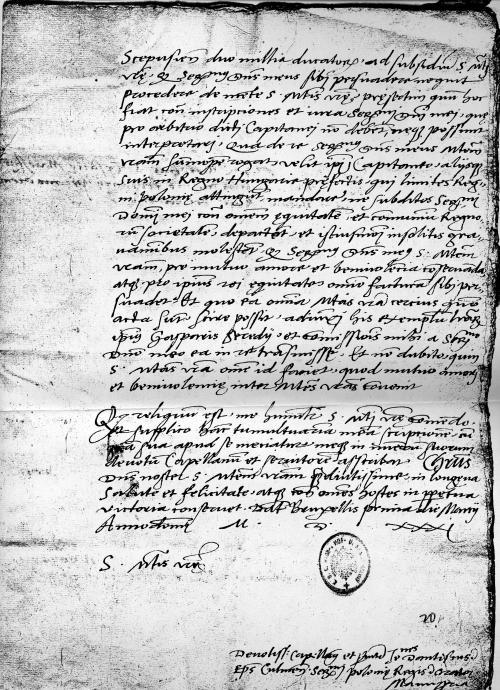 Scepusien duo millia ducatorum ad subsidium S. Mtis
vrae, quod Sermus dns meus sibi persuadere nequit
procedere de mente S. Mtis vrae, presertim quum hoc
fiat contra inscriptiones et iura Sermi dni mei, que
pro arbitrio dicti Capitanei non debent neque possunt
interpretari. Qua de re Sermus dns meus Mtem
vram summopere rogat, velit ipsi Capitaneo aliisque
suis in Regno Hungarie prefectis, qui limites Regni
Polonie attingunt, mandare, ne subditos Sermi
Domini mei contra omnem equitatem et communem Regnorum
societatem, depactent et istiusmodi insolitis gra-
vaminibus molestent, quod Sermus dns meus S. Mtem
vram, pro mutuo amore et benivolentia
atque pro ipsius rei equitate omnino facturam sibi per-
suadet. Et quo ea omnia Mtas vra cercius quo
acta sunt scire possit, adiunxi his exemplum
ipsius Gasparis et comissionis mihi a Sermo
Dno meo ea in re transmisse. Et non dubito, quin
S. Mtas vra omne id faciet, quod mutuo amori
et benivolentie inter Mtes vras convenit
Quod reliquum est, me humiliter S. Mti vre comendo.
Et supplico hac tumultuaria mea scriptione
sua apud se meque in suorum
devotum Capellanum et servitorem asscribat. Christus
Dns noster S. Mtem vram in longeva
salute et felicitate atque contra omnes hostes in perpetua
victoria conservet. Dat Bruxellis prima die Maii
Anno domini M. D. XXXI
S. Mtis vrae
20
Devotiss. Capellanus et Joannes Dantiscus
Eps Culmen Sermi Polonie Regis Orator
Manu ppria